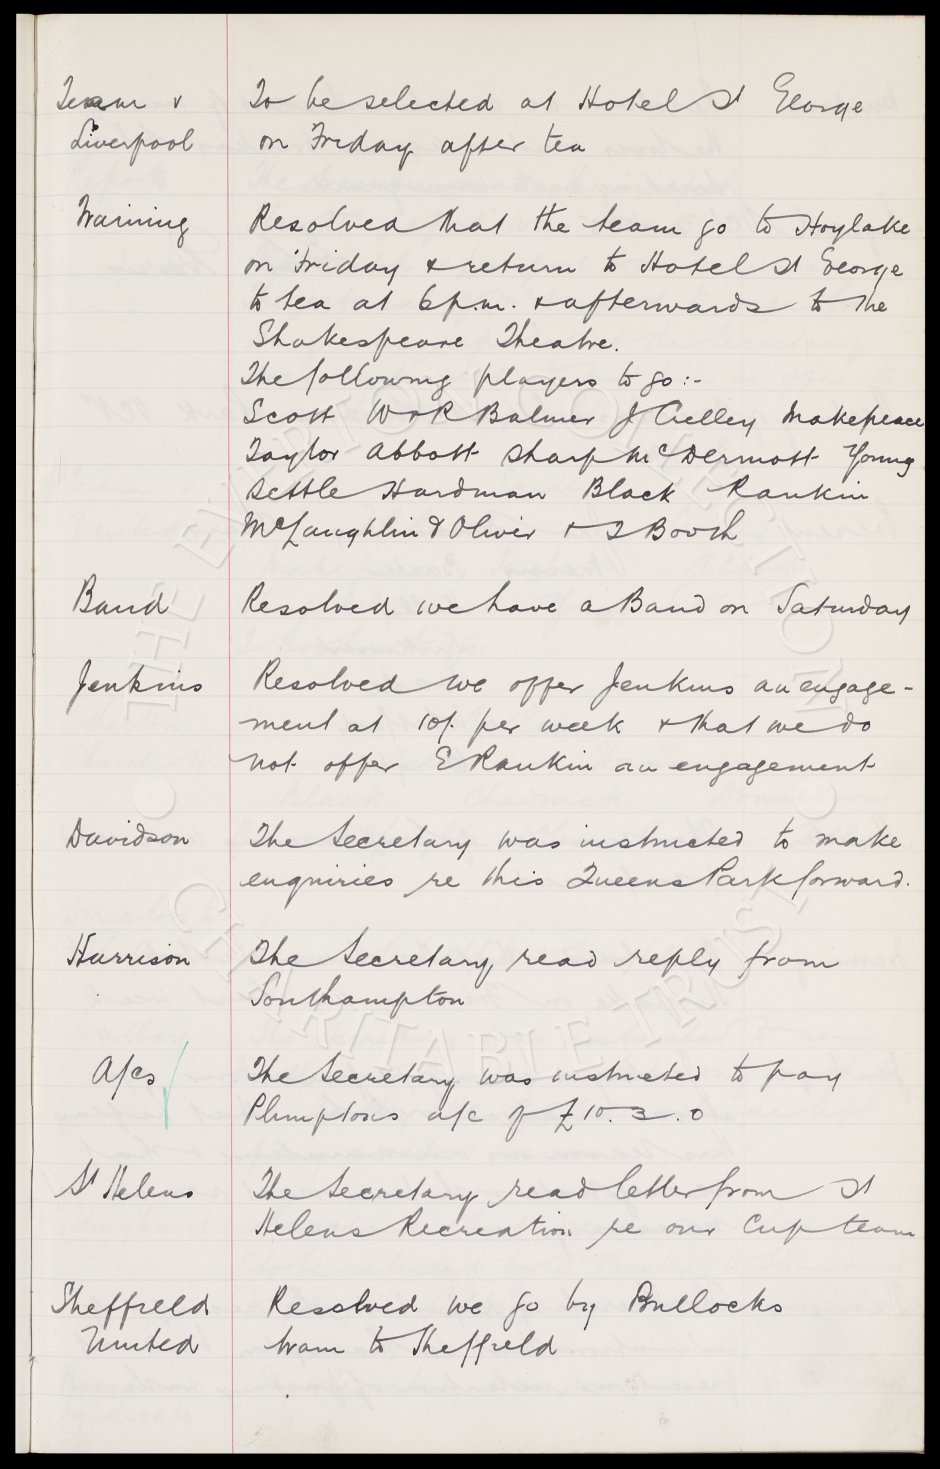 Team v To be selected at Hotel St George
Liverpool on Friday after tea
Training Resolved that the team go to Hoylake
on Friday & return to Hotel St George
to tea at 6 p.m. & afterwards to the
Shakespeare Theatre.
The following players to go :-
Scott W & R Balmer J Crelley Makepeace
Taylor Abbott Sharp McDermott Young
Settle Hardman Black Rankin
McLaughlin & Oliver & T Booth
Band Resolved we have a Band on Saturday
Jenkins Resolved we offer Jenkins an engage-
ment at 10/. per week & that we do
not offer E Rankin an engagement
Davidson The Secretary was instructed to make
enquiries re this Queens Park forward.
Harrison The Secretary read reply from
Southampton
A/cs The Secretary was instructed to pay
Plumptons a/c of £10.3.0
St Helens The Secretary read letter from St
Helens Recreation re our Cup team
Sheffield Resolved we go by Bullocks
United tram to Sheffield
THE EVERTON COLLECTION
CHARITABLE TRUST